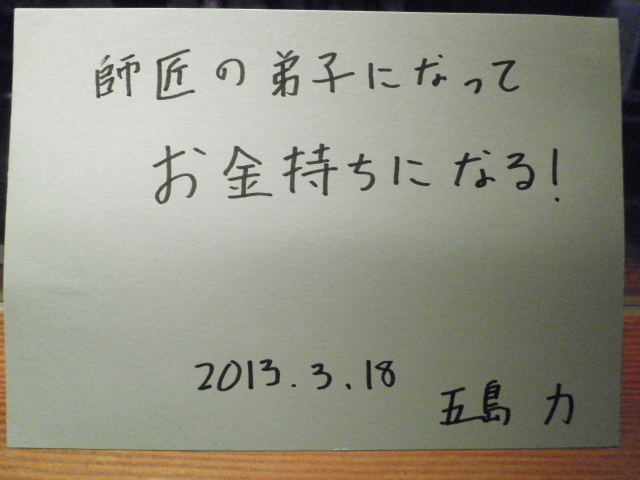 師匠の弟子になって
お金持ちになる!
2013.3.18
五島 力